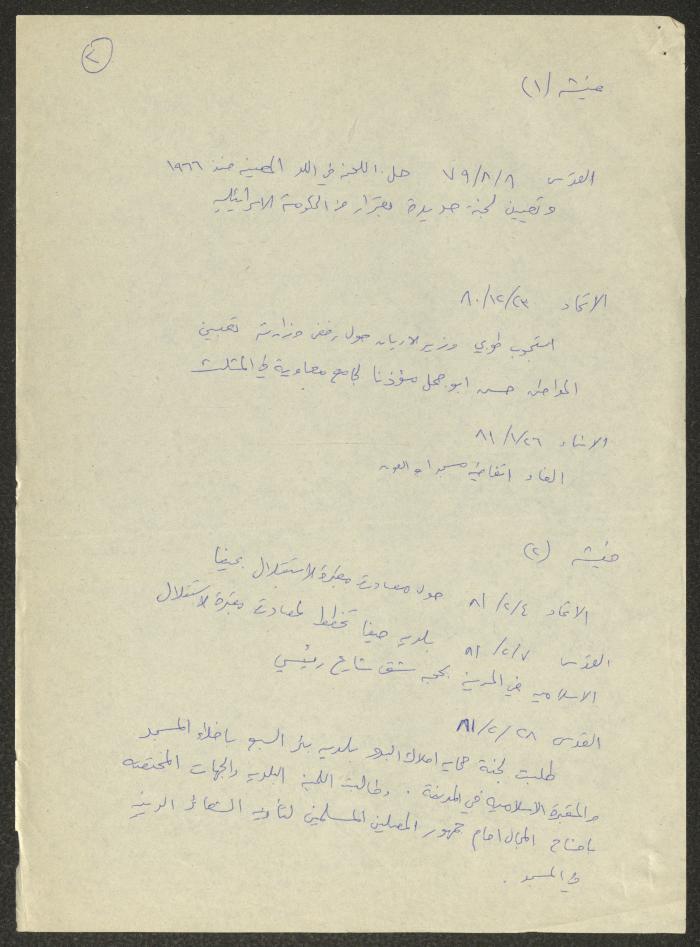 ٢
(١)
القدس ٧٩/٨/٨ حل اللجنة في اللد المعينة منذ ١٩٦٦
وتعيين لجنة جديدة بقرار من الحكومة الاسرائيلية
الاتحاد ٨٠/١٢/٢٣
استجوب طوبي وزير الاديان حول رفض وزارته تعيين
المواطن حسن ابو مؤذنا لجامع معاوية في المثلث
الانباء ٨١/١/٢٦
الغاء اتفاقية مسجد
(٢)
الاتحاد ٨١/٢/٤ حول مصادرة مقبرة الاستقلال بحيفا
القدس ٨١/٢/٧ بلدية حيفا تخطط لمصادرة مقبرة الاستقلال
الاسلامية في المدينة بحجة شق شارع رئيسي
القدس ٨١/٢/٢٨
طلبت لجنة حماية املاك البدو بلدية بئر السبع باخلاء المسجد
والمقبرة الاسلامية في المدينة . وطالبت اللجنة البلدية والجهات المختصة
بافساح المجال امام جمهور المصلين المسلمين لتأدية الشعائر الدينية
في المسجد .